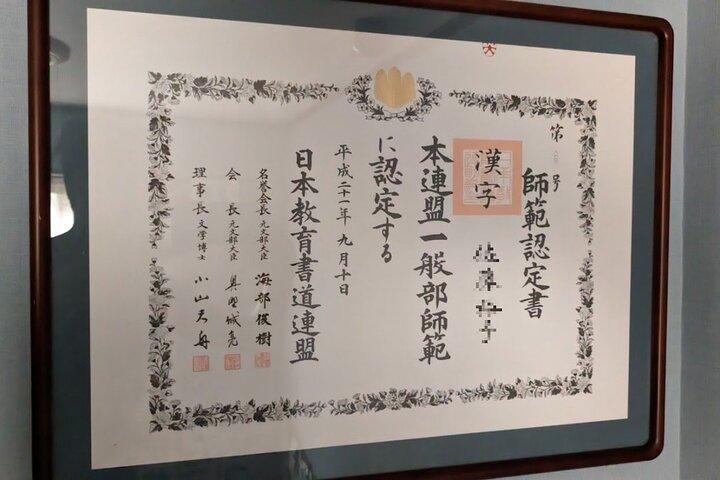 師範認定書
第 号
漢字
本連盟一般部師範
に認定する
平成二十一年九月十日
日本教育書道連盟
名誉会長 元文部大臣 海部俊樹
会長 元文部大臣 奥野誠亮
理事長 文学博士 小山天舟